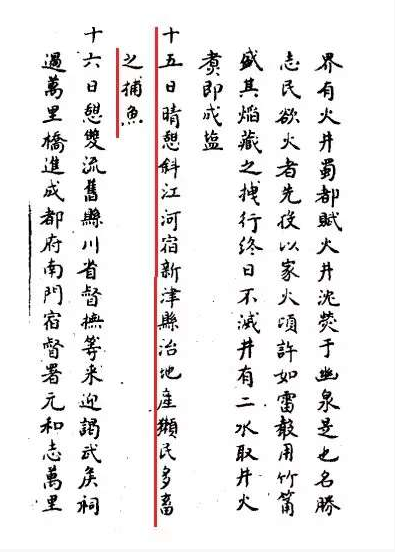 界有火井蜀都賦火井沈熒于幽泉是也名勝
志民欲火者先投以家火頃許如雷聲用竹筩
盛其焰藏之拽行終日不滅井有二水取井火
煑即成塩
十五日晴憩斜江河宿新津縣治地產獺民多畜
之捕魚
十六日憩雙流舊縣川省督撫等來迎謁武矦祠
過萬里橋進成都府南門宿督署元和志萬里